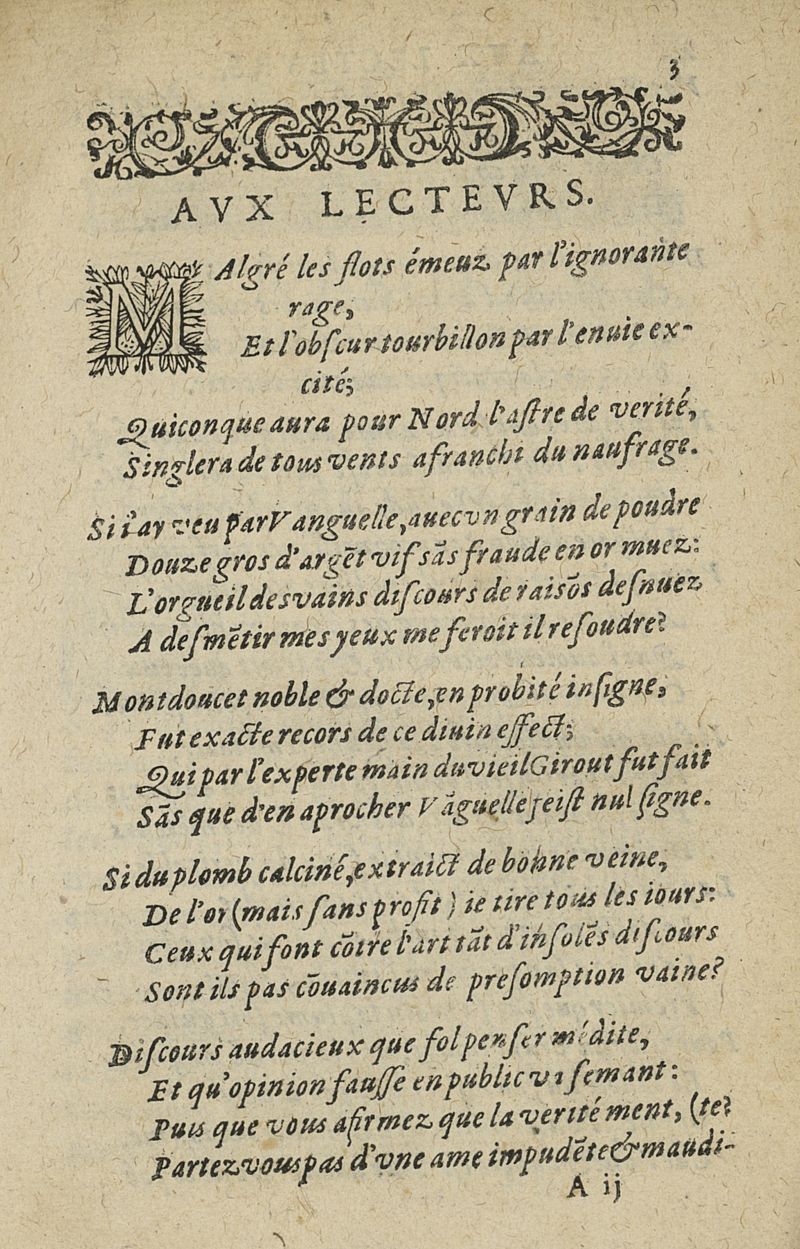 3
AVX LECTEVRS.
MAlgré les flots émeuz par l'ignorante
rage,
Et l'obſcur tourbillon par l'enuie ex-
cité;
Quiconque aura pour Nord l'aſtre de verité,
Singlera de tous vents afranchi du naufrage.
Si i'ay veu par Vanguelle, auec vn grain de poudre
Douze gros d'argẽt vif sãs fraude en or muez:
L'orgueil des vains diſcours de raisõs deſnuez
A deſmẽtir mes yeux me feroit il reſoudre?
Montdoucet noble & docte, en probité inſigne,
Fut exacte recors de ce diuin effect;
Qui par l'experte main du vieil Girout fut fait
Sãs que d'en aprocher Vãguelle feiſt nul ſigne.
Si du plomb calciné, extraict de bonne veine,
De l'or (mais ſans profit) ie tire tous les iours:
Ceux qui font cõtre l'art tãt d'inſolẽs diſcours
Sont ils pas cõuaincus de preſomption vaine?
Diſcours audacieux que fol penſer médite,
Et qu'opinion fauſſe en public va ſemant:
Puis que vous afirmez que la verité ment, (te?
Partez vous pas d'vne ame impudẽte & maudi-
A ij